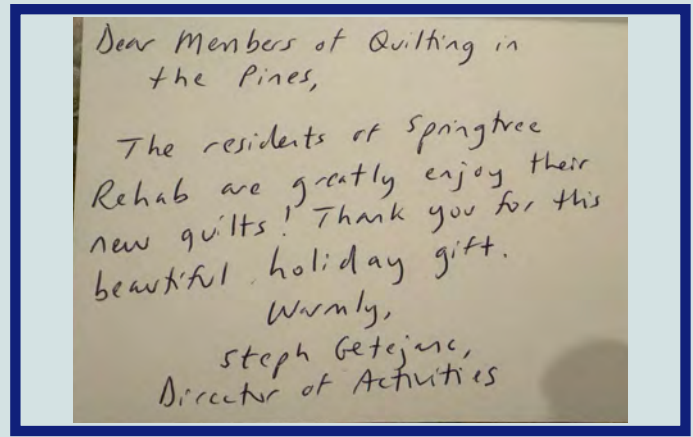 Dear Members of Quilting in
the Pines,
The residents of Springtree
Rehab are greatly enjoy their
new quilts! Thank you for this
beautiful holiday gift.
Warmly,
Steph
Director of Activities